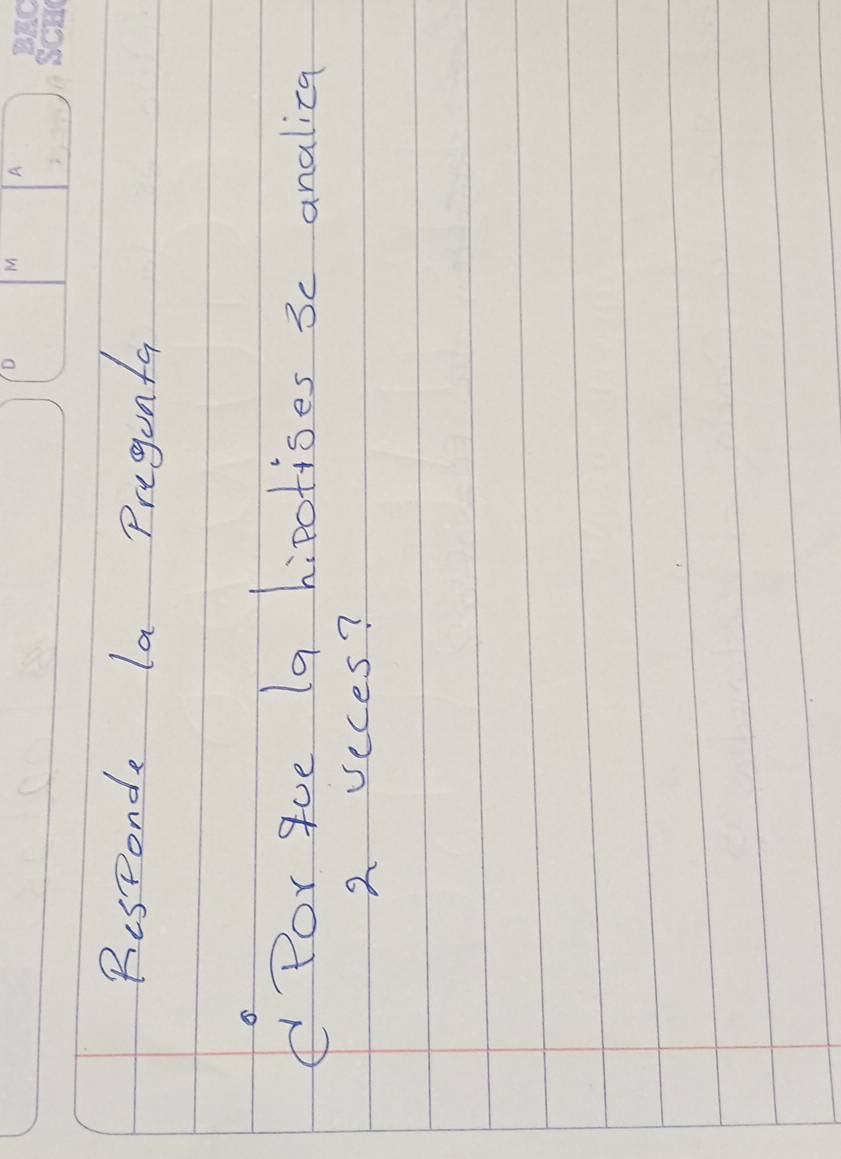 D M A
Responde la Pregunta
¿Por que la hipotises se analiza
2 veces?